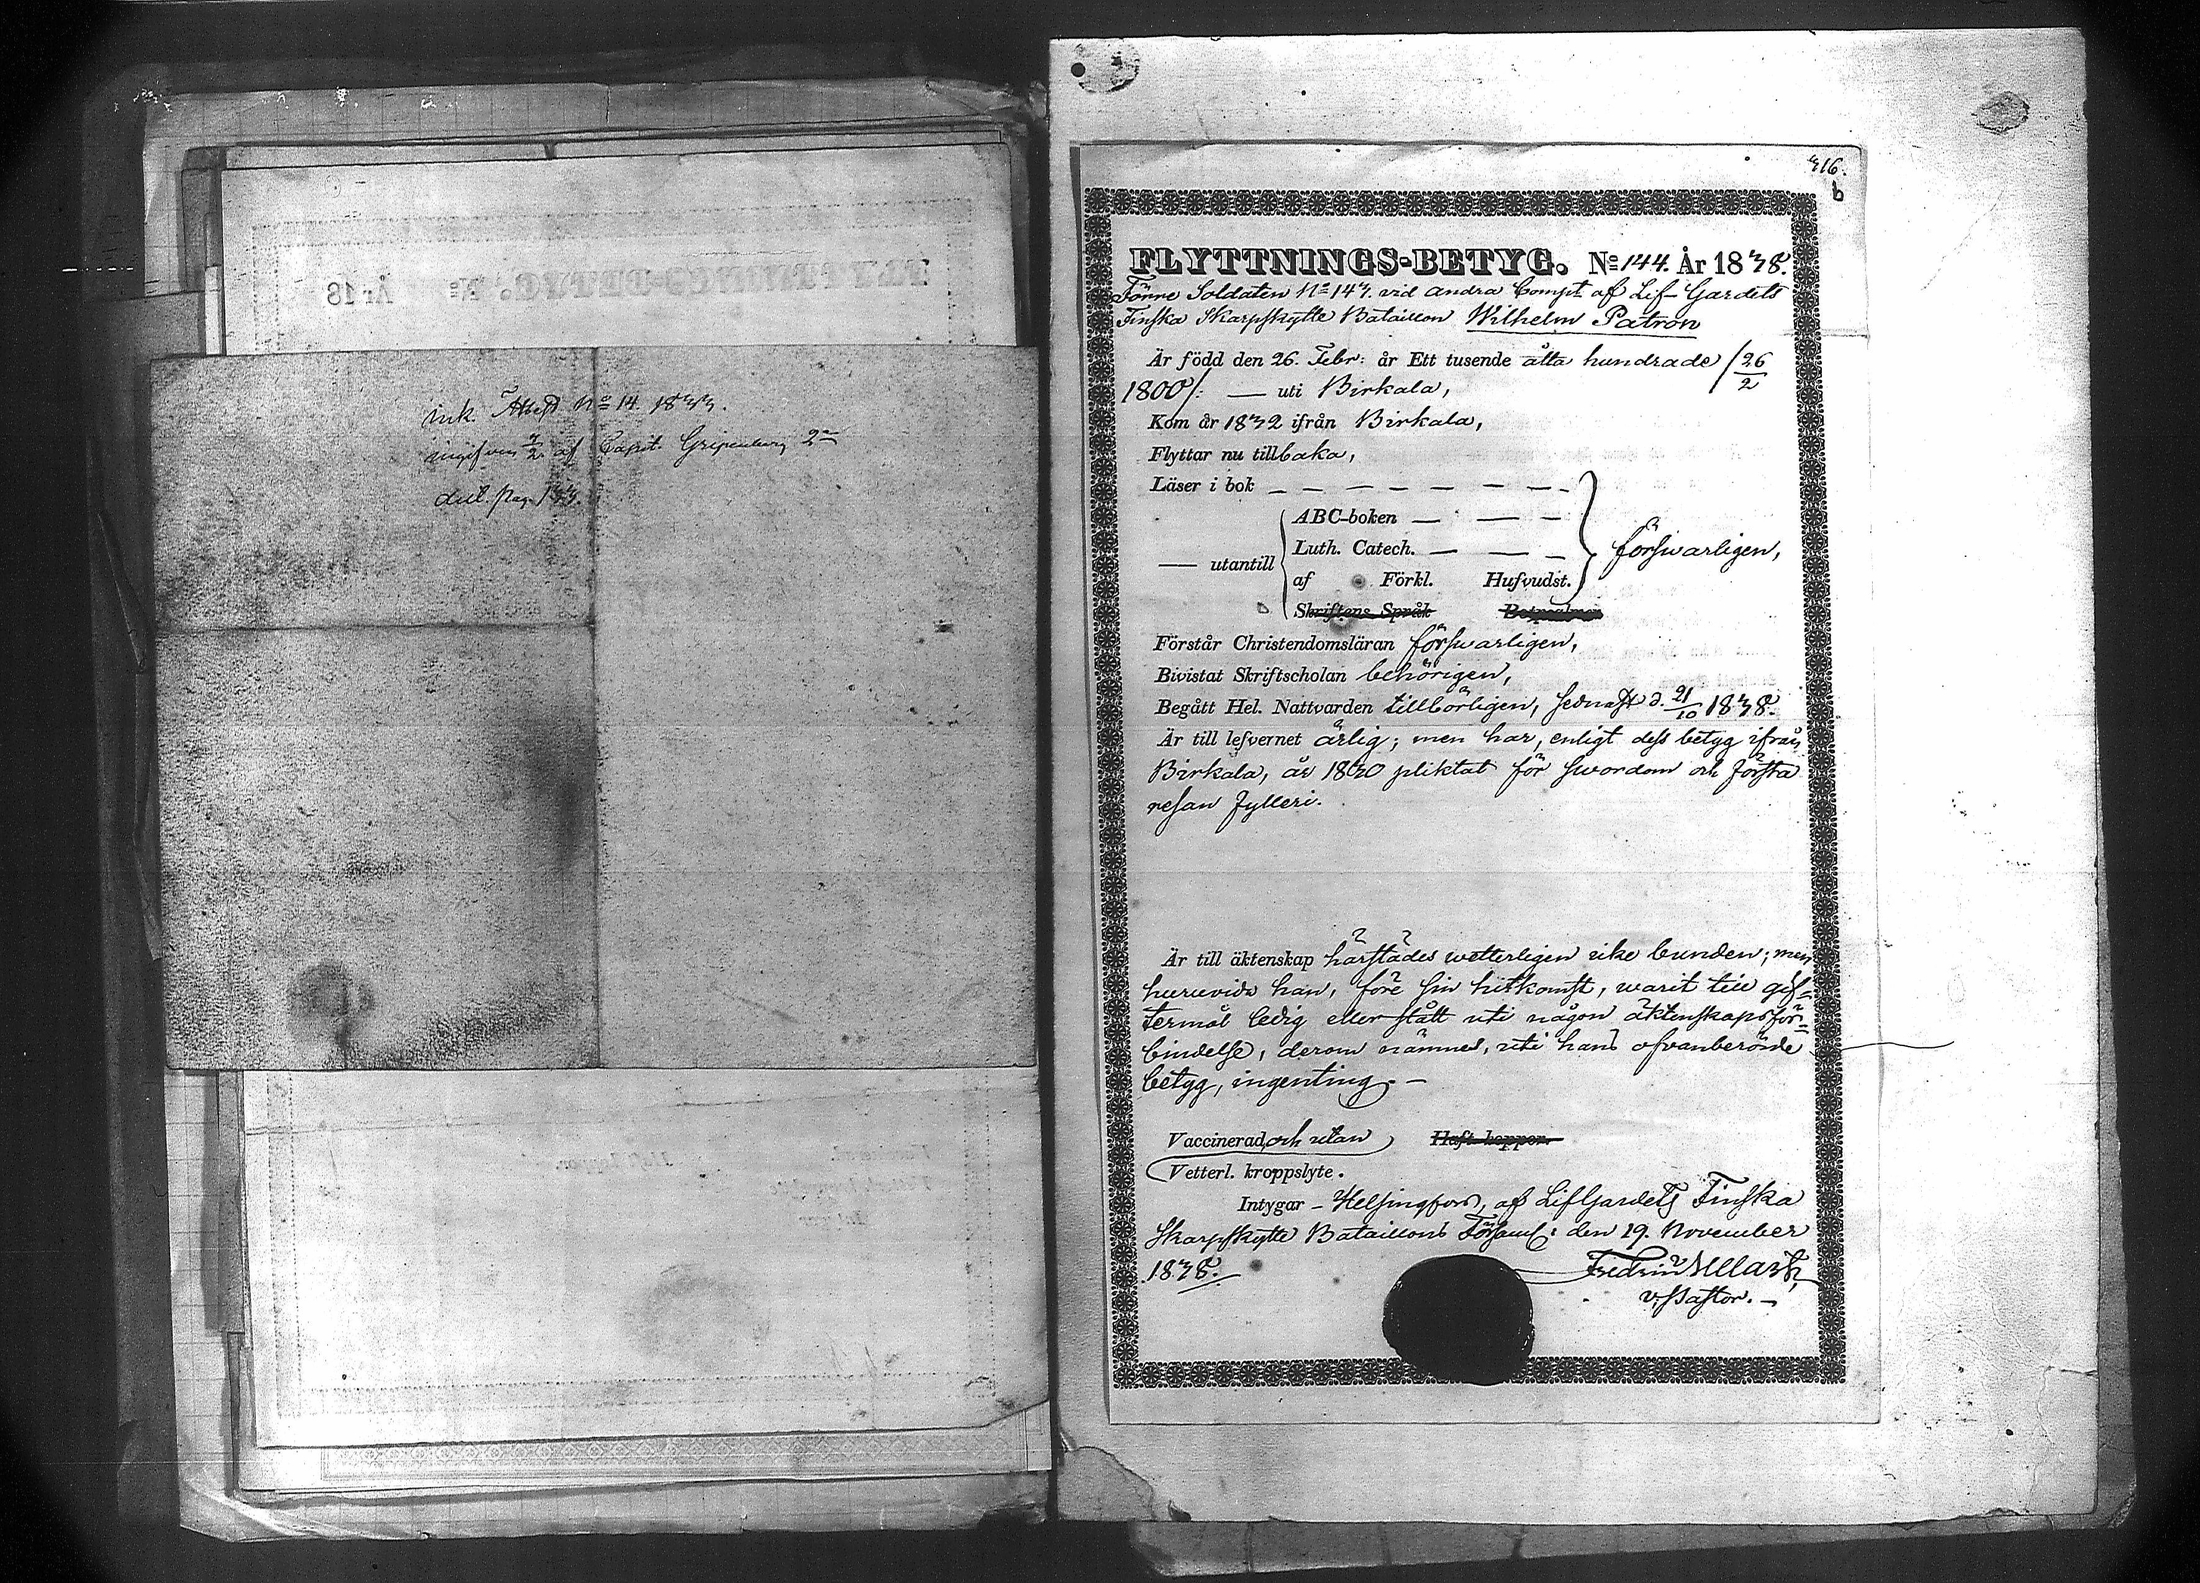 ink. Attest No 14. 1833.
ingifven 7/2 af Capit. Gripenberg 2n
dul. pag. 133.
316.
b
FLYTTNINGS-BETYG. No 144. År 1838.
Förre Soldaten No 143. vid Andra Compt af Lif-Gardets
Finska Skarpskytte Bataillon Wilhelm Patron
Är född den 26. Febr: år Ett tusende åtta hundrade /26/2
1800/: — uti Birkala,
Kom år 1832 ifrån Birkala,
Flyttar nu tillbaka,
Läser i bok — — — — — — —
ABC-boken — — —
— utantill Luth. Catech. — — — försvarligen,
af Förkl. Hufvudst.
Skriftens Språk Botpsalmer
Förstår Christendomsläran försvarligen,
Bivistat Skriftscholan behörigen,
Begått Hel. Nattvarden tillbörligen, sednast d. 21/10 1838.
Är till lefvernet ärlig; men har, enligt dess betyg ifrån
Birkala, år 1830 pliktat för swordom och första
resan fylleri.
Är till äktenskap härstädes wetterligen icke bunden; men
huruvida han, före sin hitkomst, warit till gif-
termål ledig eller stått uti någon äktenskapsför-
bindelse, derom nämnes, uti hans ofvanberörde
betyg, ingenting. —
Vaccinerad, och utan Haft koppor.
Vetterl. kroppslyte.
Intygar – Helsingfors, af LifGardets Finska
Skarpskytte Bataillons Församl: den 19. November
1838.
v. Pastor. —